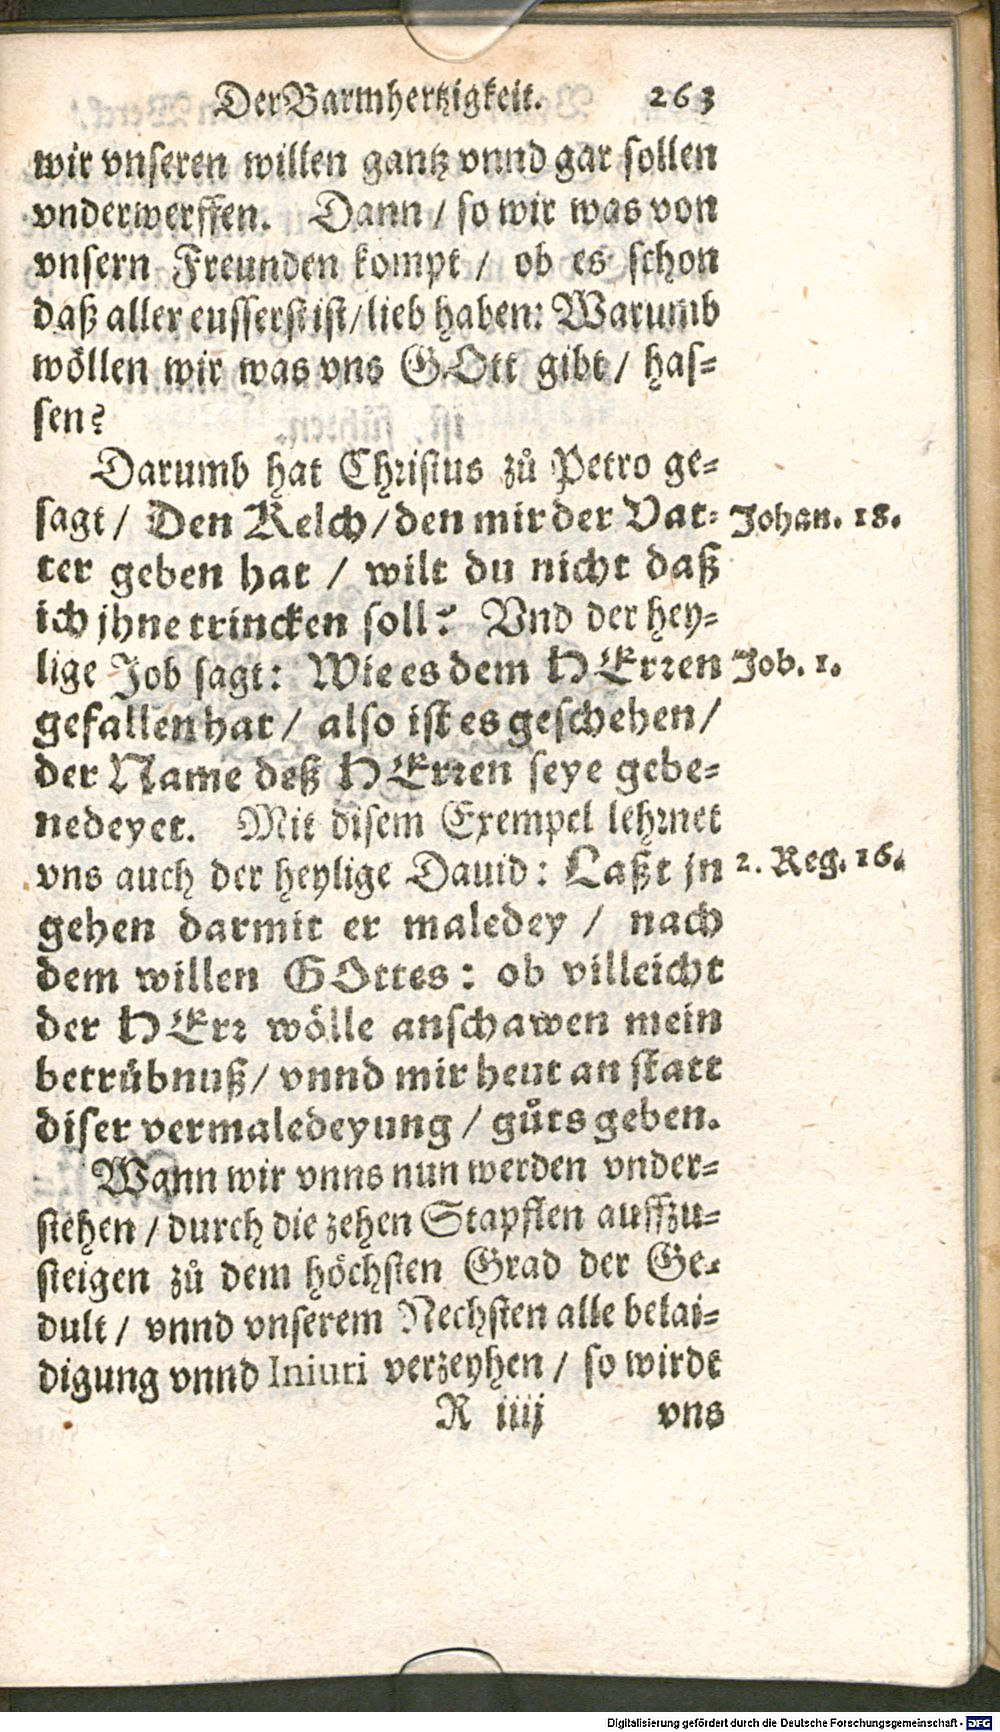 Der Barmhertzigkeit. 263
wir vnseren willen gantz vnnd gar sollen
vnderwerffen. Dann / so wir was von
vnsern Freunden kompt / ob es schon
daß aller eusserst ist / lieb haben: Warumb
wöllen wir was vns GOtt gibt / has-
sen?
Darumb hat Christus zů Petro ge-
sagt / Den Kelch / den mir der Vat- Johan. 18.
ter geben hat / wilt du nicht daß
ich jhne trincken soll? Vnd der hey-
lige Job sagt: Wie es dem HErren Job. 1.
gefallen hat / also ist es geschehen /
der Name deß HErren seye gebe-
nedeyet. Mit disem Exempel lehrnet
vns auch der heylige Dauid: Laßt jn 2. Reg. 16.
gehen darmit er maledey / nach
dem willen GOttes: ob villeicht
der HErr wölle anschawen mein
betrübnuß / vnnd mir heut an statt
diser vermaledeyung / gůts geben.
Wann wir vnns nun werden vnder-
stehen / durch die zehen Stapflen auffzu-
steigen zů dem höchsten Grad der Ge-
dult / vnnd vnserem Nechsten alle belai-
digung vnnd Iniuri verzeyhen / so wirdt
R iiij vns
Digitalisierung gefördert durch die Deutsche Forschungsgemeinschaft - DFG